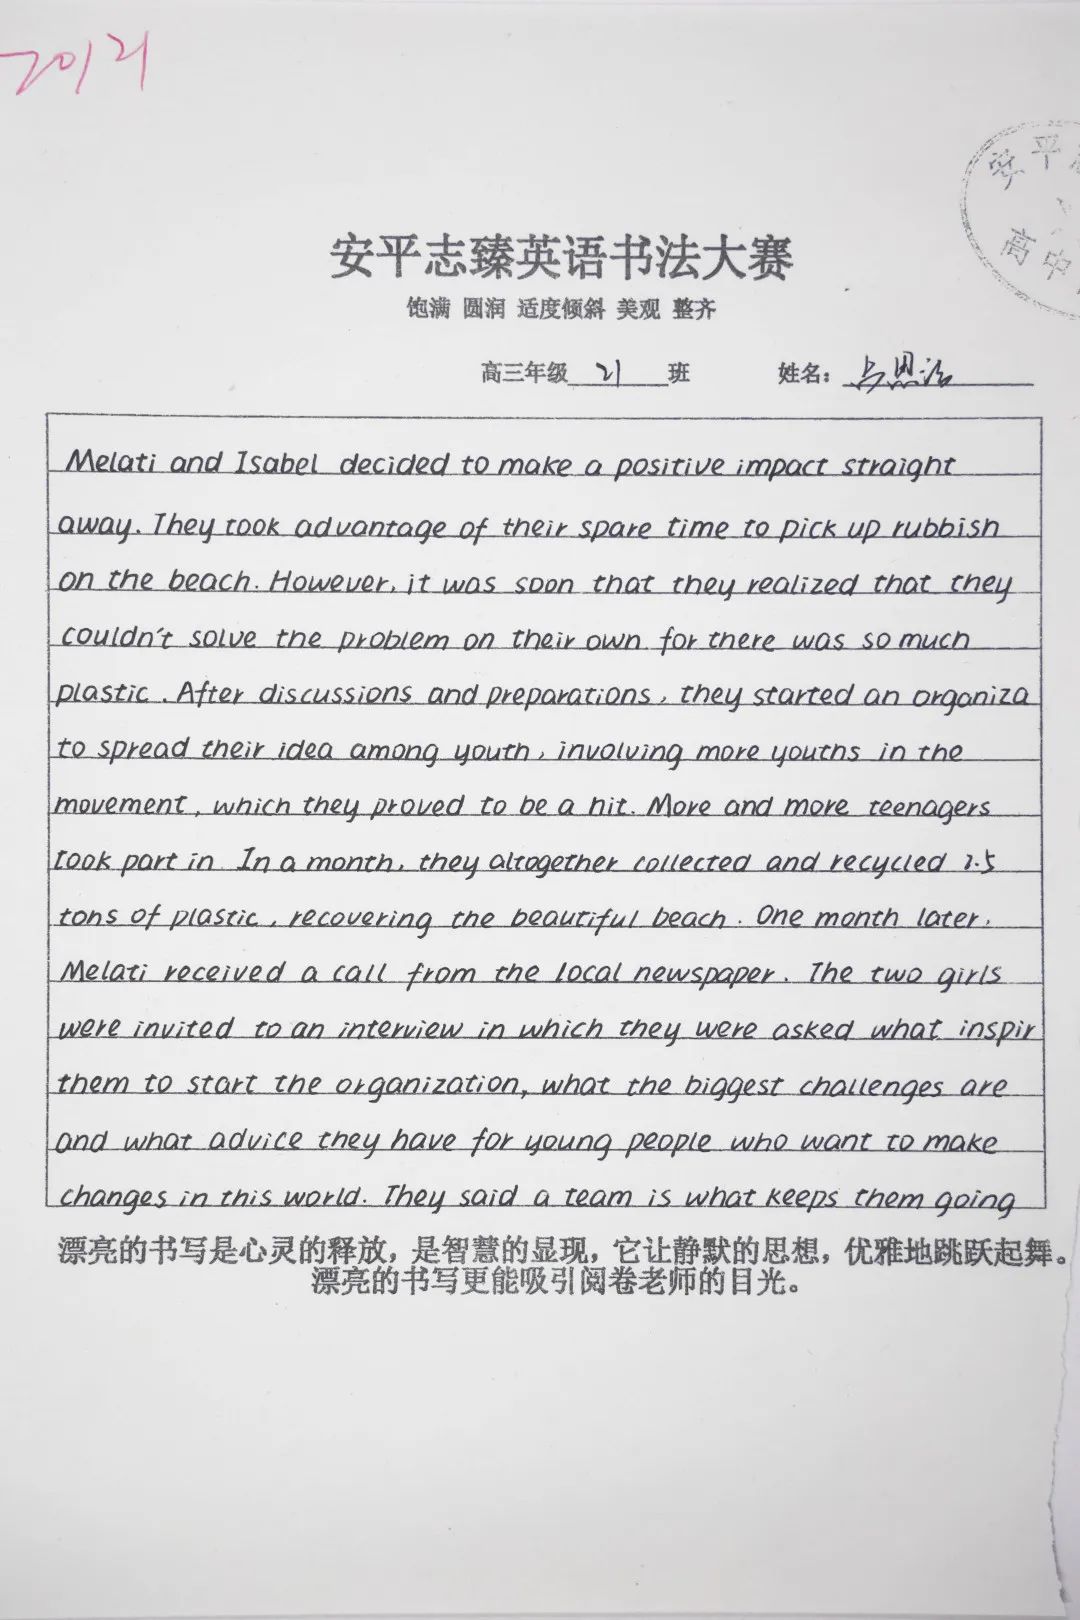 2021
安平
高中
安平志臻英语书法大赛
饱满 圆润 适度倾斜 美观 整齐
高三年级 21 班 姓名：
Melati and Isabel decided to make a positive impact straight
away. They took advantage of their spare time to pick up rubbish
on the beach. However, it was soon that they realized that they
couldn't solve the problem on their own for there was so much
plastic. After discussions and preparations, they started an organiza
to spread their idea among youth, involving more youths in the
movement, which they proved to be a hit. More and more teenagers
took part in In a month, they altogether collected and recycled 2.5
tons of plastic, recovering the beautiful beach. One month later,
Melati received a call from the local newspaper. The two girls
were invited to an interview in which they were asked what inspir
them to start the organization, what the biggest challenges are
and what advice they have for young people who want to make
changes in this world. They said a team is what keeps them going
漂亮的书写是心灵的释放，是智慧的显现，它让静默的思想，优雅地跳跃起舞。
漂亮的书写更能吸引阅卷老师的目光。